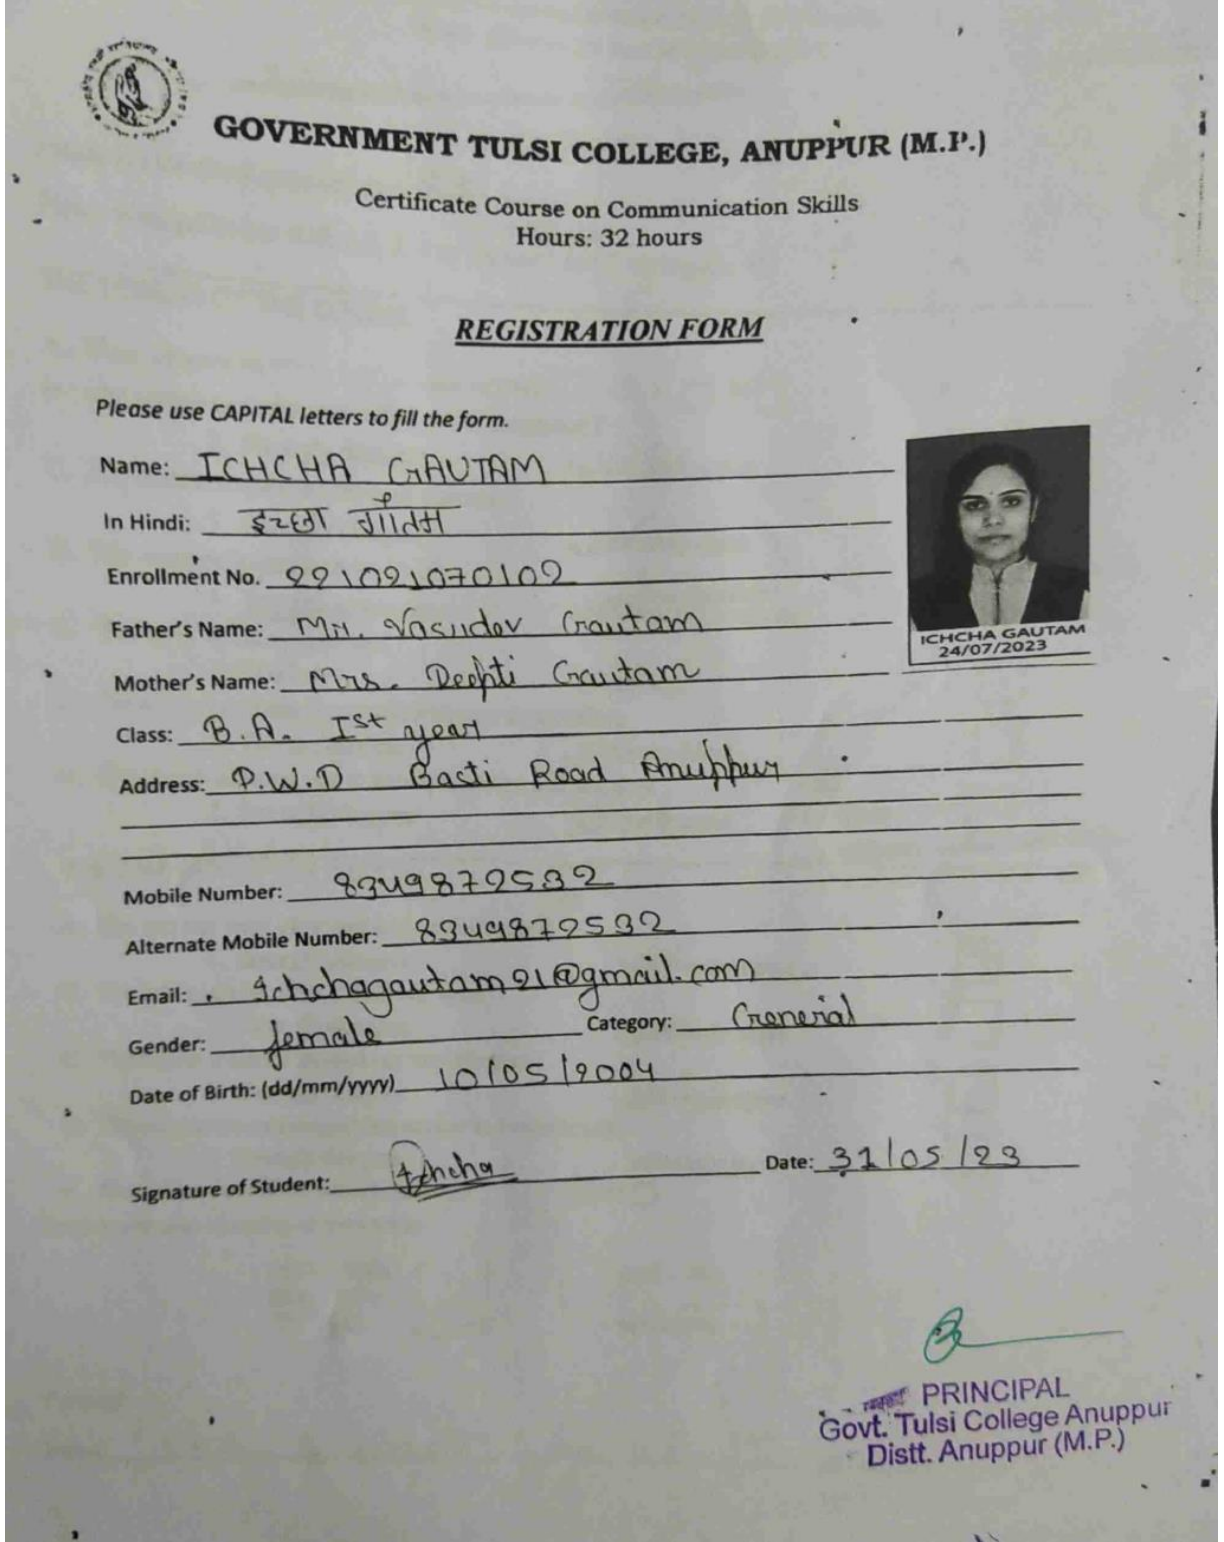 GOVERNMENT TULSI COLLEGE, ANUPPUR (M.P.)
Certificate Course on Communication Skills
Hours: 32 hours
REGISTRATION FORM
Please use CAPITAL letters to fill the form.
Name: ICHCHA GAUTAM
In Hindi: इच्छा गौतम
Enrollment No. 221021070102
Father's Name: Mr. Vasudev Gautam
ICHCHA GAUTAM
24/07/2023
Mother's Name: Mrs. Deepti Gautam
Class: B.A. Ist year
Address: P.W.D Basti Road Anuppur
Mobile Number: 8349872532
Alternate Mobile Number: 8349872532
Email: Ichchagautam21@gmail.com
Gender: female Category: General
Date of Birth: (dd/mm/yyyy) 10/05/2004
Signature of Student: Ichcha Date: 31/05/23
PRINCIPAL
Govt. Tulsi College Anuppur
Distt. Anuppur (M.P.)